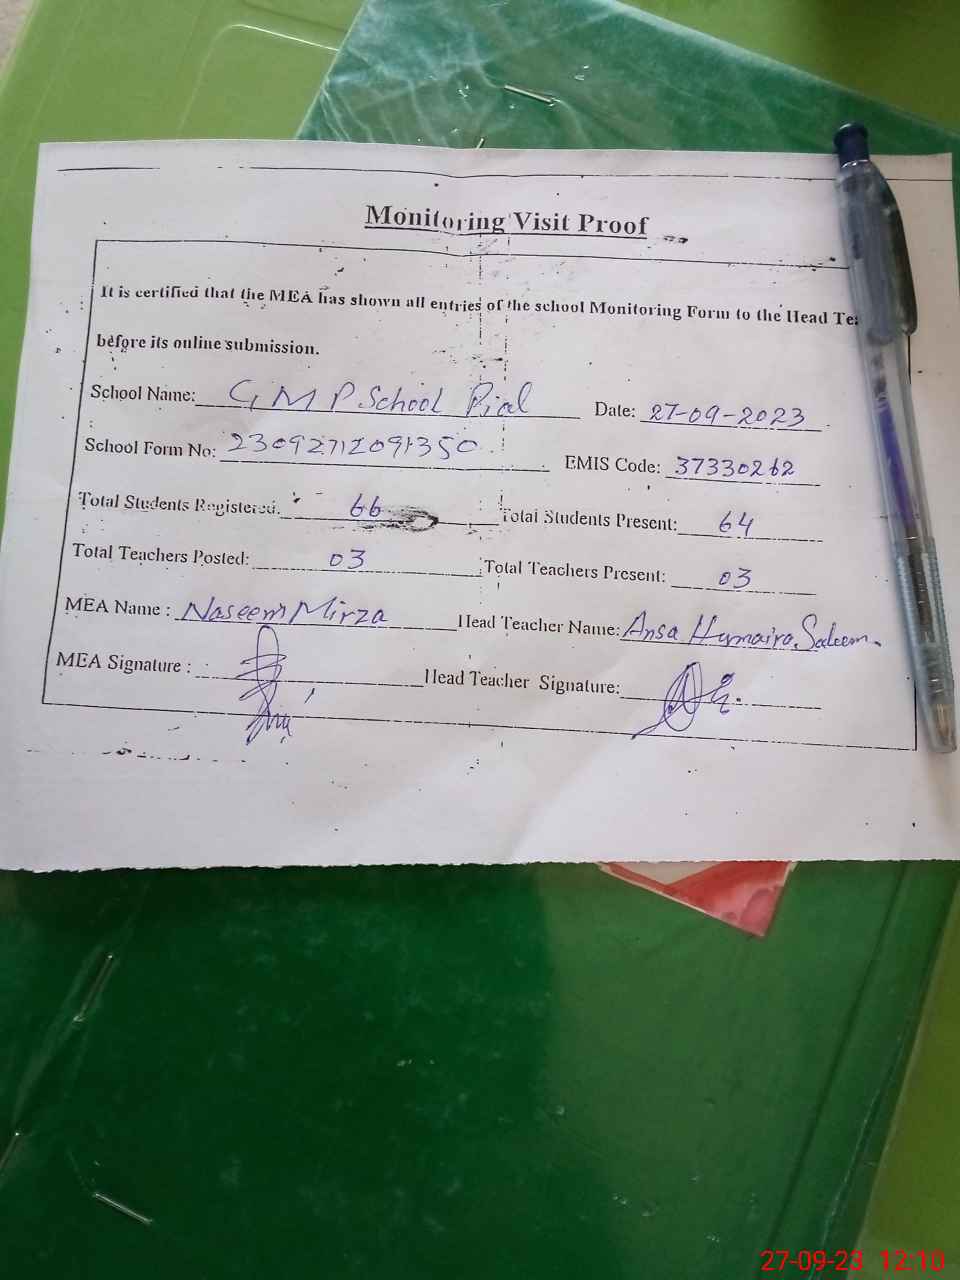 Monitoring Visit Proof
It is certified that the MEA has shown all entries of the school Monitoring Form to the Head Te
before its online submission.
School Name: G M P School Pial Date: 27-09-2023
School Form No: EMIS Code: 37330262
Total Students Registered. 66 Total Students Present: 64
Total Teachers Posted: 03 Total Teachers Present: 03
MEA Name : Naseem Mirza Head Teacher Name: Ansa Humaira Saleem.
MEA Signature : Head Teacher Signature:
27-09-23 12:10